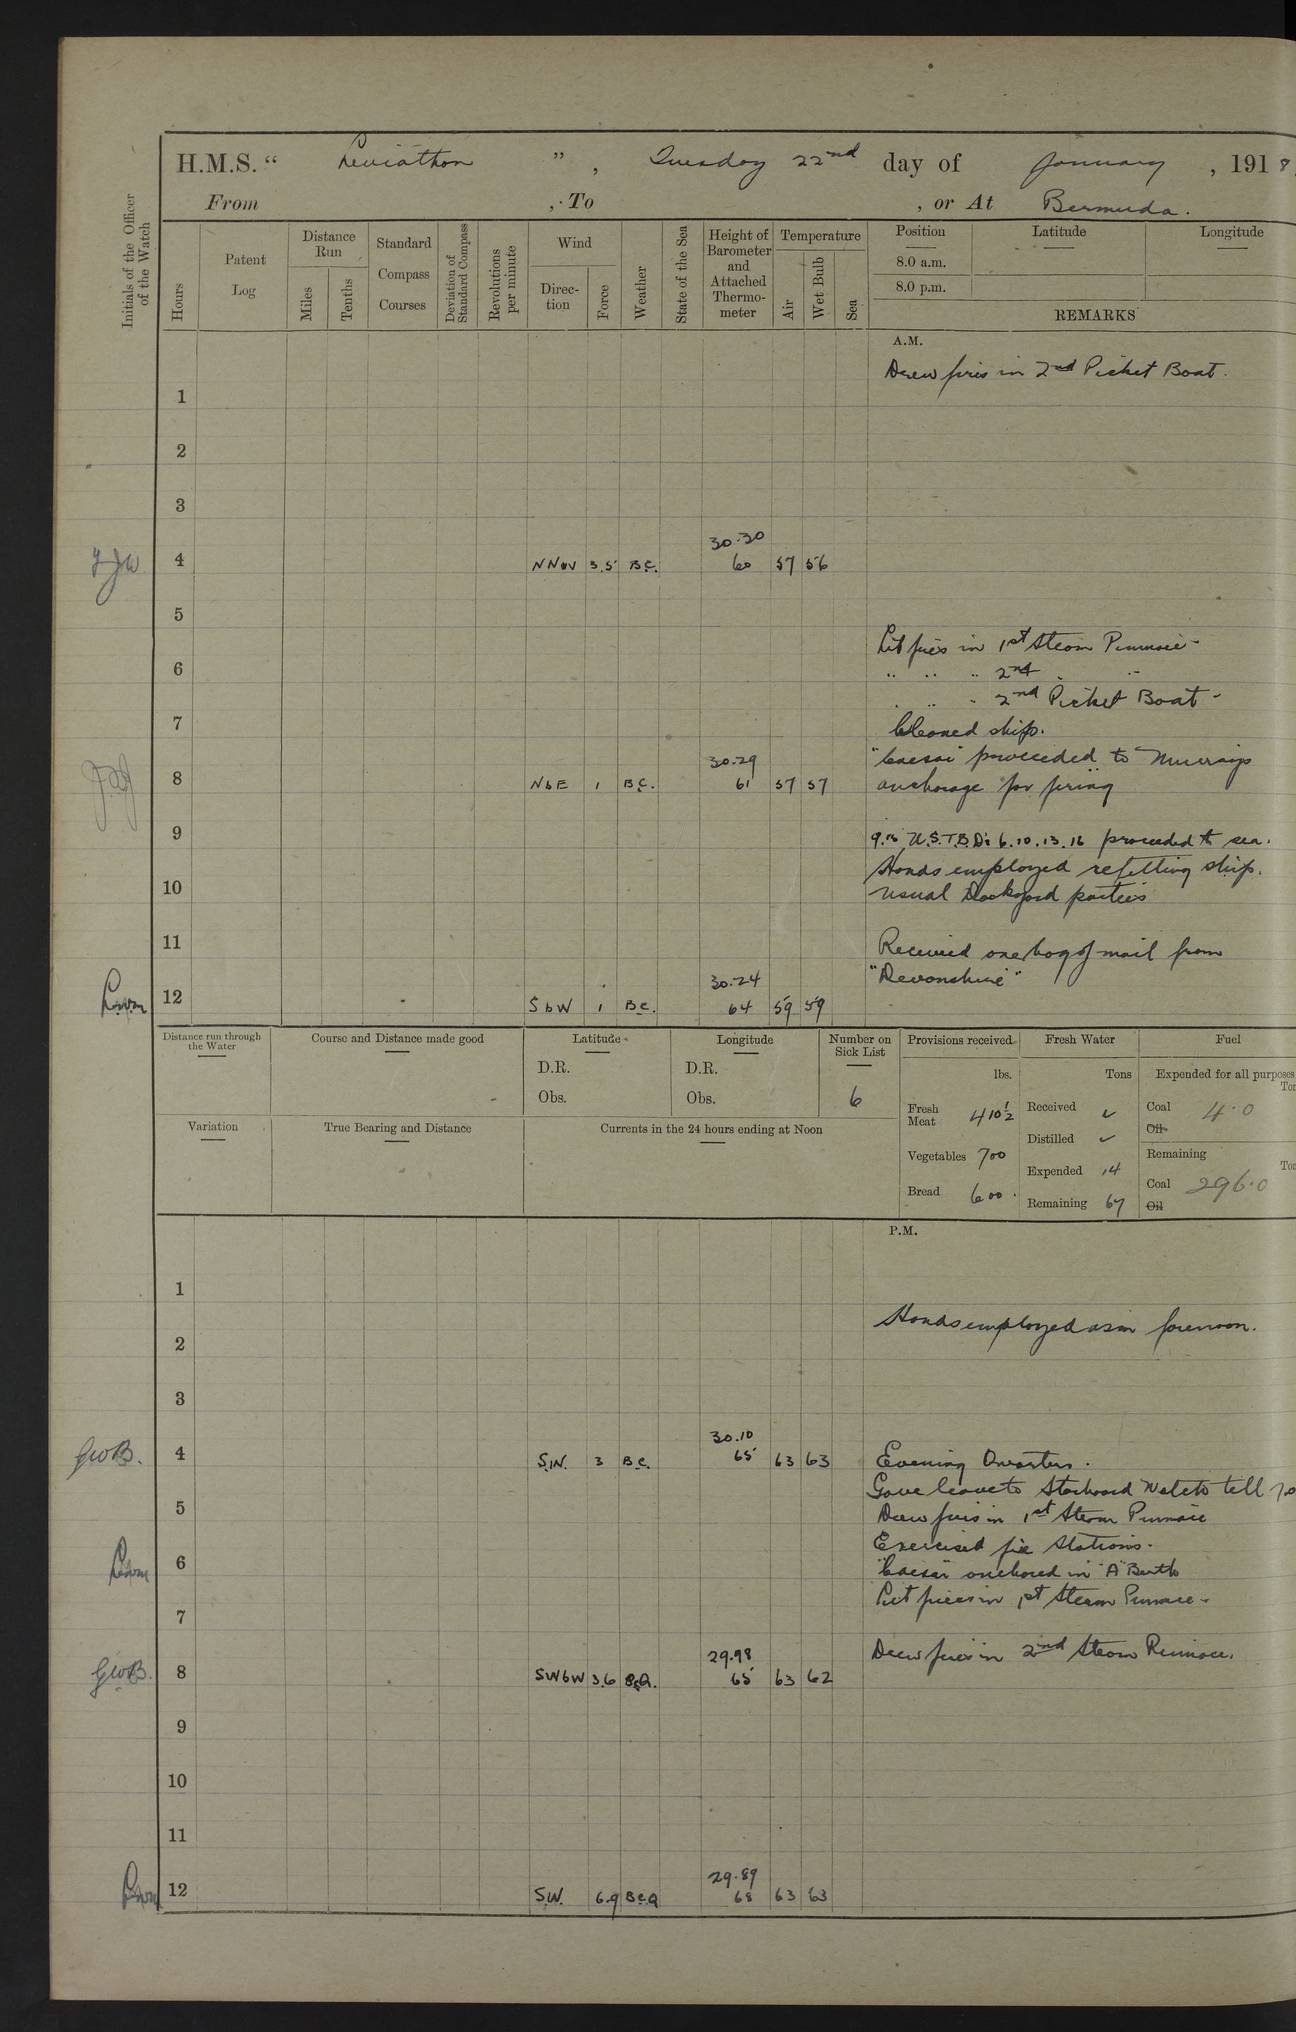 H.M.S. “ Leviathan ” , Tuesday 22nd day of January , 1918
From , To , or At Bermuda.
Initials of the Officer of the Watch
Hours
Patent Log
Distance Run
Miles
Tenths
Standard Compass Courses
Deviation of Standard Compass
Revolutions per minute
Wind
Direction
Force
Weather
State of the Sea
Height of Barometer and Attached Thermometer
Temperature
Air
Wet Bulb
Sea
Position
Latitude
Longitude
8.0 a.m.
8.0 p.m.
REMARKS
A.M.
Drew fires in 2nd Picket Boat.
1
2
3
30.30
4 NNW 3.5 B.C. 60 57 56
5
Lit fires in 1st Steam Pinnace
6 " " " 2nd " "
" " " 2nd Picket Boat
7 Cleaned ship.
30.29 "Caesar" proceeded to Murrays
8 NbE 1 B.C. 61 57 57 anchorage for firing
9 9.15 U.S.T.B.Ds 6.10.13.16 proceeded to sea.
Hands employed refitting ship.
10 usual Dockyard parties
11 Received one bag of mail from
30.24 "Devonshire"
Lwm 12 SbW 1 B.C. 64 59 59
Distance run through the Water
Course and Distance made good
Latitude
D.R.
Obs.
Longitude
D.R.
Obs.
Number on Sick List
6
Provisions received
lbs.
Fresh Meat 410½
Vegetables 700
Bread 600
Fresh Water
Tons
Received ✓
Distilled ✓
Expended 14
Remaining 67
Fuel
Expended for all purposes
Coal 4.0
Oil
Remaining
Coal 296.0
Oil
Variation
True Bearing and Distance
Currents in the 24 hours ending at Noon
P.M.
1
Hands employed as in forenoon.
2
3
30.10
GWB. 4 3 B.C. 65 63 63 Evening Quarters.
Gave leave to Starboard Watch till 7.0
5 Drew fires in 1st Steam Pinnace
Exercised fire Stations.
Lwm 6 "Caesar" anchored in "A" Berth
Lit fires in 1st Steam Pinnace
7
29.98 Drew fires in 2nd Steam Pinnace.
GWB. 8 SWbW 3.6 B.C.Q. 65 63 62
9
10
11
29.89
Lwm 12 SW. 6.9 B.C.Q 68 63 63